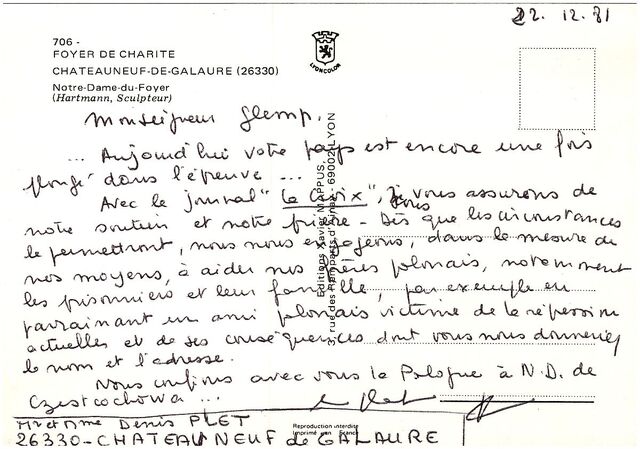 22.12.81
706 -
FOYER DE CHARITE
CHATEAUNEUF-DE-GALAURE (26330)
Notre-Dame-du-Foyer
(Hartmann, Sculpteur)
LYONCOLOR
Monseigneur Glemp.
... Aujourd'hui votre pays est encore une fois
plongé dans l'épreuve ...
Avec le journal "La Croix", nous vous assurons de
notre soutien et notre prière - Dès que les circonstances
le permettront, nous nous engageons, dans la mesure de
nos moyens, à aider nos frères polonais, notamment
les prisonniers et leur famille, par exemple en
parrainant un ami polonais victime de la répression
actuelles et de ses conséquences dont vous nous donneriez
le nom et l'adresse.
Nous confions avec vous la Pologne à N.D. de
Czestochowa ...
Mr et Mme Denis PLET
26330 - CHATEAUNEUF de GALAURE
Editions Xavier MAPPUS
3, rue des Remparts d'Ainay - 69002 LYON
Reproduction interdite
Imprimé en France